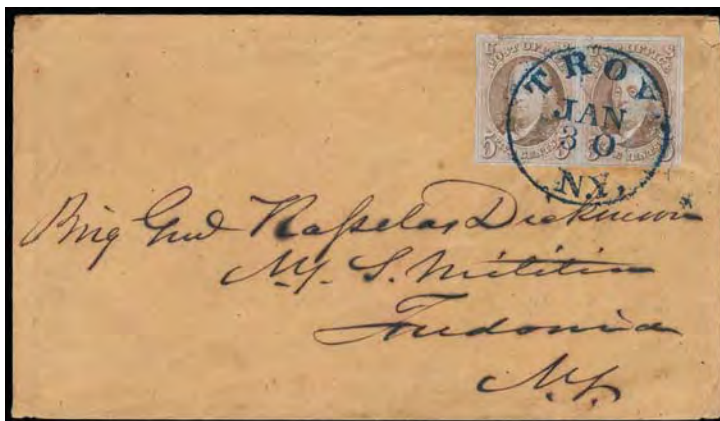 POST OFFICE POST OFFICE
5 FIVE CENTS 5 FIVE CENTS
TROY
JAN
30
N.Y.
Brig Genl Rasselas Dickinson
N.Y. S. Militia
Fredonia
N.Y.